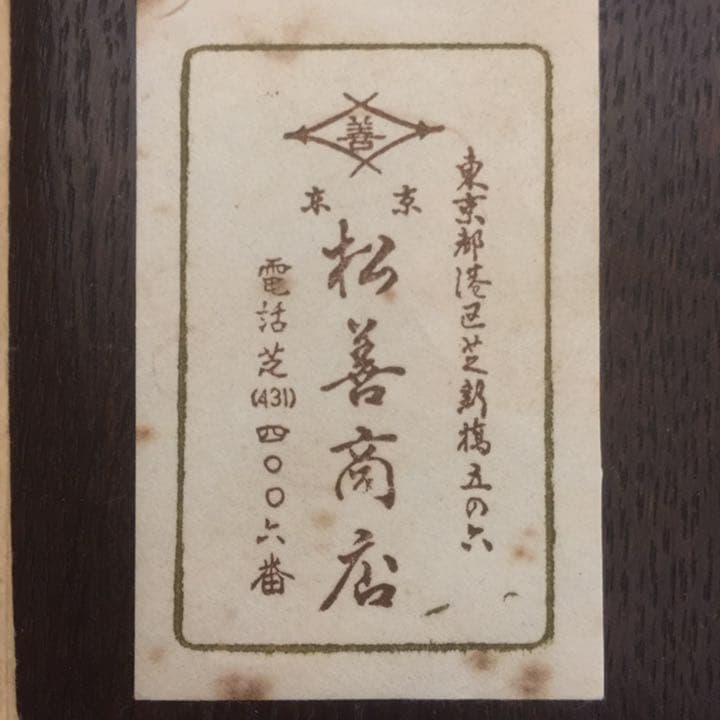 善
東京都港区芝新橋五の六
東京
松善商店
電話芝(431)四〇〇六番